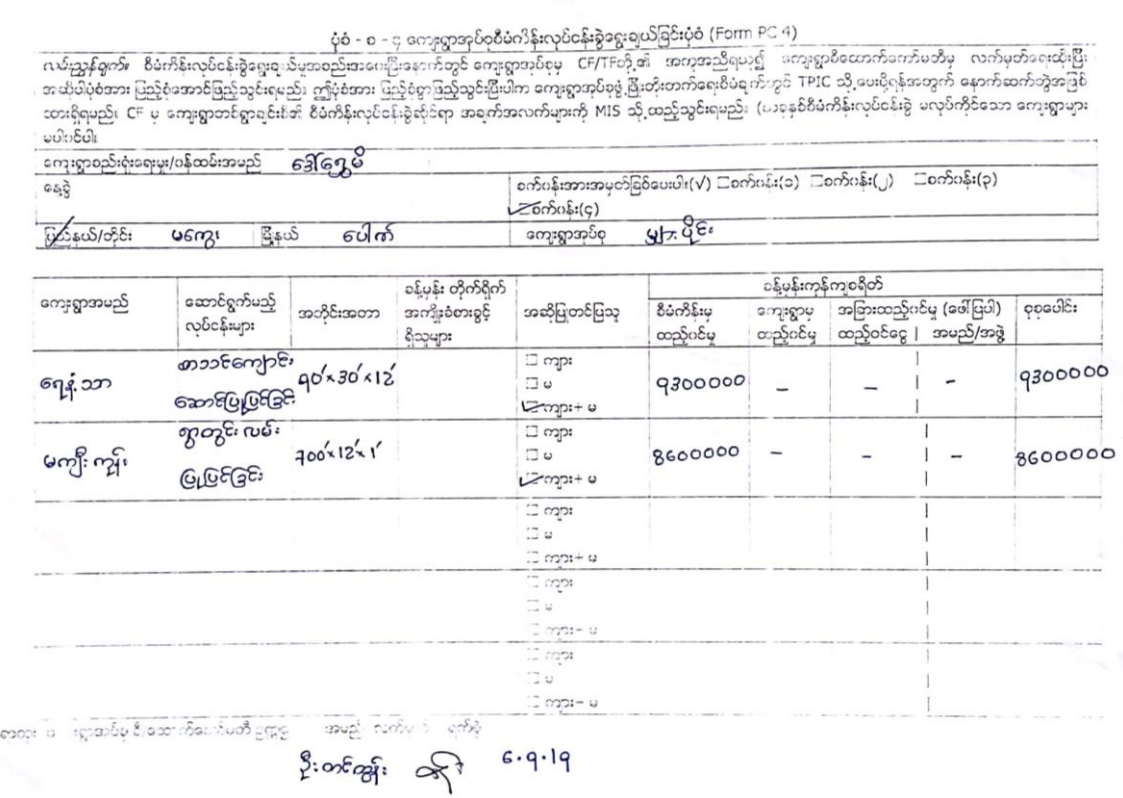 ပုံစံ - စ - ၄ ကျေးရွာအုပ်စုစီမံကိန်းလုပ်ငန်းခွဲရွေးချယ်ခြင်းပုံစံ (Form PC 4)
လမ်းညွှန်ချက်။ စီမံကိန်းလုပ်ငန်းခွဲရွေးချယ်မှုအစည်းအဝေးပြီးနောက်တွင် ကျေးရွာအုပ်စုမှ CF/TFတို့၏ အကူအညီရယူ၍ ကျေးရွာစီထောက်ကော်မတီမှ လက်မှတ်ရေးထိုးပြီး
အဆိုပါပုံစံအား ပြည့်စုံအောင်ဖြည့်သွင်းရမည်။ ဤပုံစံအား ပြည့်စုံစွာဖြည့်သွင်းပြီးပါက ကျေးရွာအုပ်စုဖွံ့ဖြိုးတိုးတက်ရေးစီမံချက်တွင် TPIC သို့ပေးပို့ရန်အတွက် နောက်ဆက်တွဲအဖြစ်
ထားရှိရမည်။ CF မှ ကျေးရွာတစ်ရွာချင်းစီ၏ စီမံကိန်းလုပ်ငန်းခွဲဆိုင်ရာ အချက်အလက်များကို MIS သို့ထည့်သွင်းရမည်။ (ယခုနှစ်စီမံကိန်းလုပ်ငန်းခွဲ မလုပ်ကိုင်သော ကျေးရွာများ
မပါဝင်ပါ။
ကျေးရွာစည်းရုံးရေးမှူး/ဝန်ထမ်းအမည် ဒေါ်ရွှေမိ
နေ့စွဲ စက်ဝန်းအားအမှတ်ခြစ်ပေးပါ။(√) □စက်ဝန်း(၁) □စက်ဝန်း(၂) □စက်ဝန်း(၃)
☑စက်ဝန်း(၄)
ပြည်နယ်/တိုင်း မကွေး မြို့နယ် ပေါက် ကျေးရွာအုပ်စု မျှားပိုင်း
ခန့်မှန်းကုန်ကျစရိတ်
ကျေးရွာအမည် ဆောင်ရွက်မည့် လုပ်ငန်းများ အတိုင်းအတာ ခန့်မှန်း တိုက်ရိုက် အကျိုးခံစားခွင့် ရှိသူများ အဆိုပြုတင်ပြသူ စီမံကိန်းမှ ထည့်ဝင်မှု ကျေးရွာမှ ထည့်ဝင်မှု အခြားထည့်ဝင်မှု (ဖော်ပြပါ) ထည့်ဝင်ငွေ | အမည်/အဖွဲ့ စုစုပေါင်း
ရေနံ့သာ စာသင်ကျောင်း ဆောင်ပြုပြင်ခြင်း ၅0'×30'×12' □ ကျား □ မ ☑ ကျား+ မ ၇300000 – – – ၇300000
မကျီးကျွန်း ရွာတွင်းလမ်း ပြုပြင်ခြင်း 700'×12'×1' □ ကျား □ မ ☑ ကျား+ မ 8600000 – – – 8600000
□ ကျား
□ မ
□ ကျား+ မ
□ ကျား
□ မ
□ ကျား+ မ
□ ကျား
□ မ
□ ကျား+ မ
အမည်
6.9.19